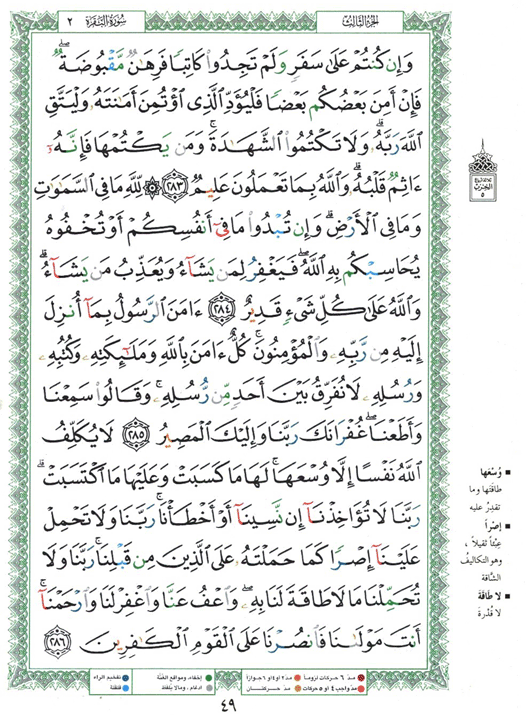 الجزء الثالث
سورة البقرة ٢
وَإِن كُنتُمْ عَلَىٰ سَفَرٍ وَلَمْ تَجِدُوا۟ كَاتِبًا فَرِهَـٰنٌ مَّقْبُوضَةٌ ۖ
فَإِنْ أَمِنَ بَعْضُكُم بَعْضًا فَلْيُؤَدِّ ٱلَّذِى ٱؤْتُمِنَ أَمَـٰنَتَهُۥ وَلْيَتَّقِ
ٱللَّهَ رَبَّهُۥ ۗ وَلَا تَكْتُمُوا۟ ٱلشَّهَـٰدَةَ ۚ وَمَن يَكْتُمْهَا فَإِنَّهُۥٓ
ءَاثِمٌ قَلْبُهُۥ ۗ وَٱللَّهُ بِمَا تَعْمَلُونَ عَلِيمٌ ٢٨٣ ۞ لِّلَّهِ مَا فِى ٱلسَّمَـٰوَٰتِ
وَمَا فِى ٱلْأَرْضِ ۗ وَإِن تُبْدُوا۟ مَا فِىٓ أَنفُسِكُمْ أَوْ تُخْفُوهُ
يُحَاسِبْكُم بِهِ ٱللَّهُ ۖ فَيَغْفِرُ لِمَن يَشَآءُ وَيُعَذِّبُ مَن يَشَآءُ ۗ
وَٱللَّهُ عَلَىٰ كُلِّ شَىْءٍ قَدِيرٌ ٢٨٤ ءَامَنَ ٱلرَّسُولُ بِمَآ أُنزِلَ
إِلَيْهِ مِن رَّبِّهِۦ وَٱلْمُؤْمِنُونَ ۚ كُلٌّ ءَامَنَ بِٱللَّهِ وَمَلَـٰٓئِكَتِهِۦ وَكُتُبِهِۦ
وَرُسُلِهِۦ لَا نُفَرِّقُ بَيْنَ أَحَدٍ مِّن رُّسُلِهِۦ ۚ وَقَالُوا۟ سَمِعْنَا
وَأَطَعْنَا ۖ غُفْرَانَكَ رَبَّنَا وَإِلَيْكَ ٱلْمَصِيرُ ٢٨٥ لَا يُكَلِّفُ
ٱللَّهُ نَفْسًا إِلَّا وُسْعَهَا ۚ لَهَا مَا كَسَبَتْ وَعَلَيْهَا مَا ٱكْتَسَبَتْ ۗ
رَبَّنَا لَا تُؤَاخِذْنَآ إِن نَّسِينَآ أَوْ أَخْطَأْنَا ۚ رَبَّنَا وَلَا تَحْمِلْ
عَلَيْنَآ إِصْرًا كَمَا حَمَلْتَهُۥ عَلَى ٱلَّذِينَ مِن قَبْلِنَا ۚ رَبَّنَا وَلَا
تُحَمِّلْنَا مَا لَا طَاقَةَ لَنَا بِهِۦ ۖ وَٱعْفُ عَنَّا وَٱغْفِرْ لَنَا وَٱرْحَمْنَآ ۚ
أَنتَ مَوْلَىٰنَا فَٱنصُرْنَا عَلَى ٱلْقَوْمِ ٱلْكَـٰفِرِينَ ٢٨٦
الحزب
٥
▪ وُسْعَها
طاقَتَها وما
تقدِرُ عليه
▪ إصْراً
عِبْئاً ثقيلاً ،
وهو التكاليفُ
الشاقة
▪ لا طاقَةَ
لا قُدْرةَ
مدّ ٦ حركات لزوماً
مدّ ٢ أو ٤ أو ٦ جوازاً
إخفاء، ومواقع الغُنَّة
تفخيم الراء
مدّ واجب ٤ أو ٥ حركات
مدّ حركتان
ادغام ، وما لا يُلفَظ
قلقلة
٤٩